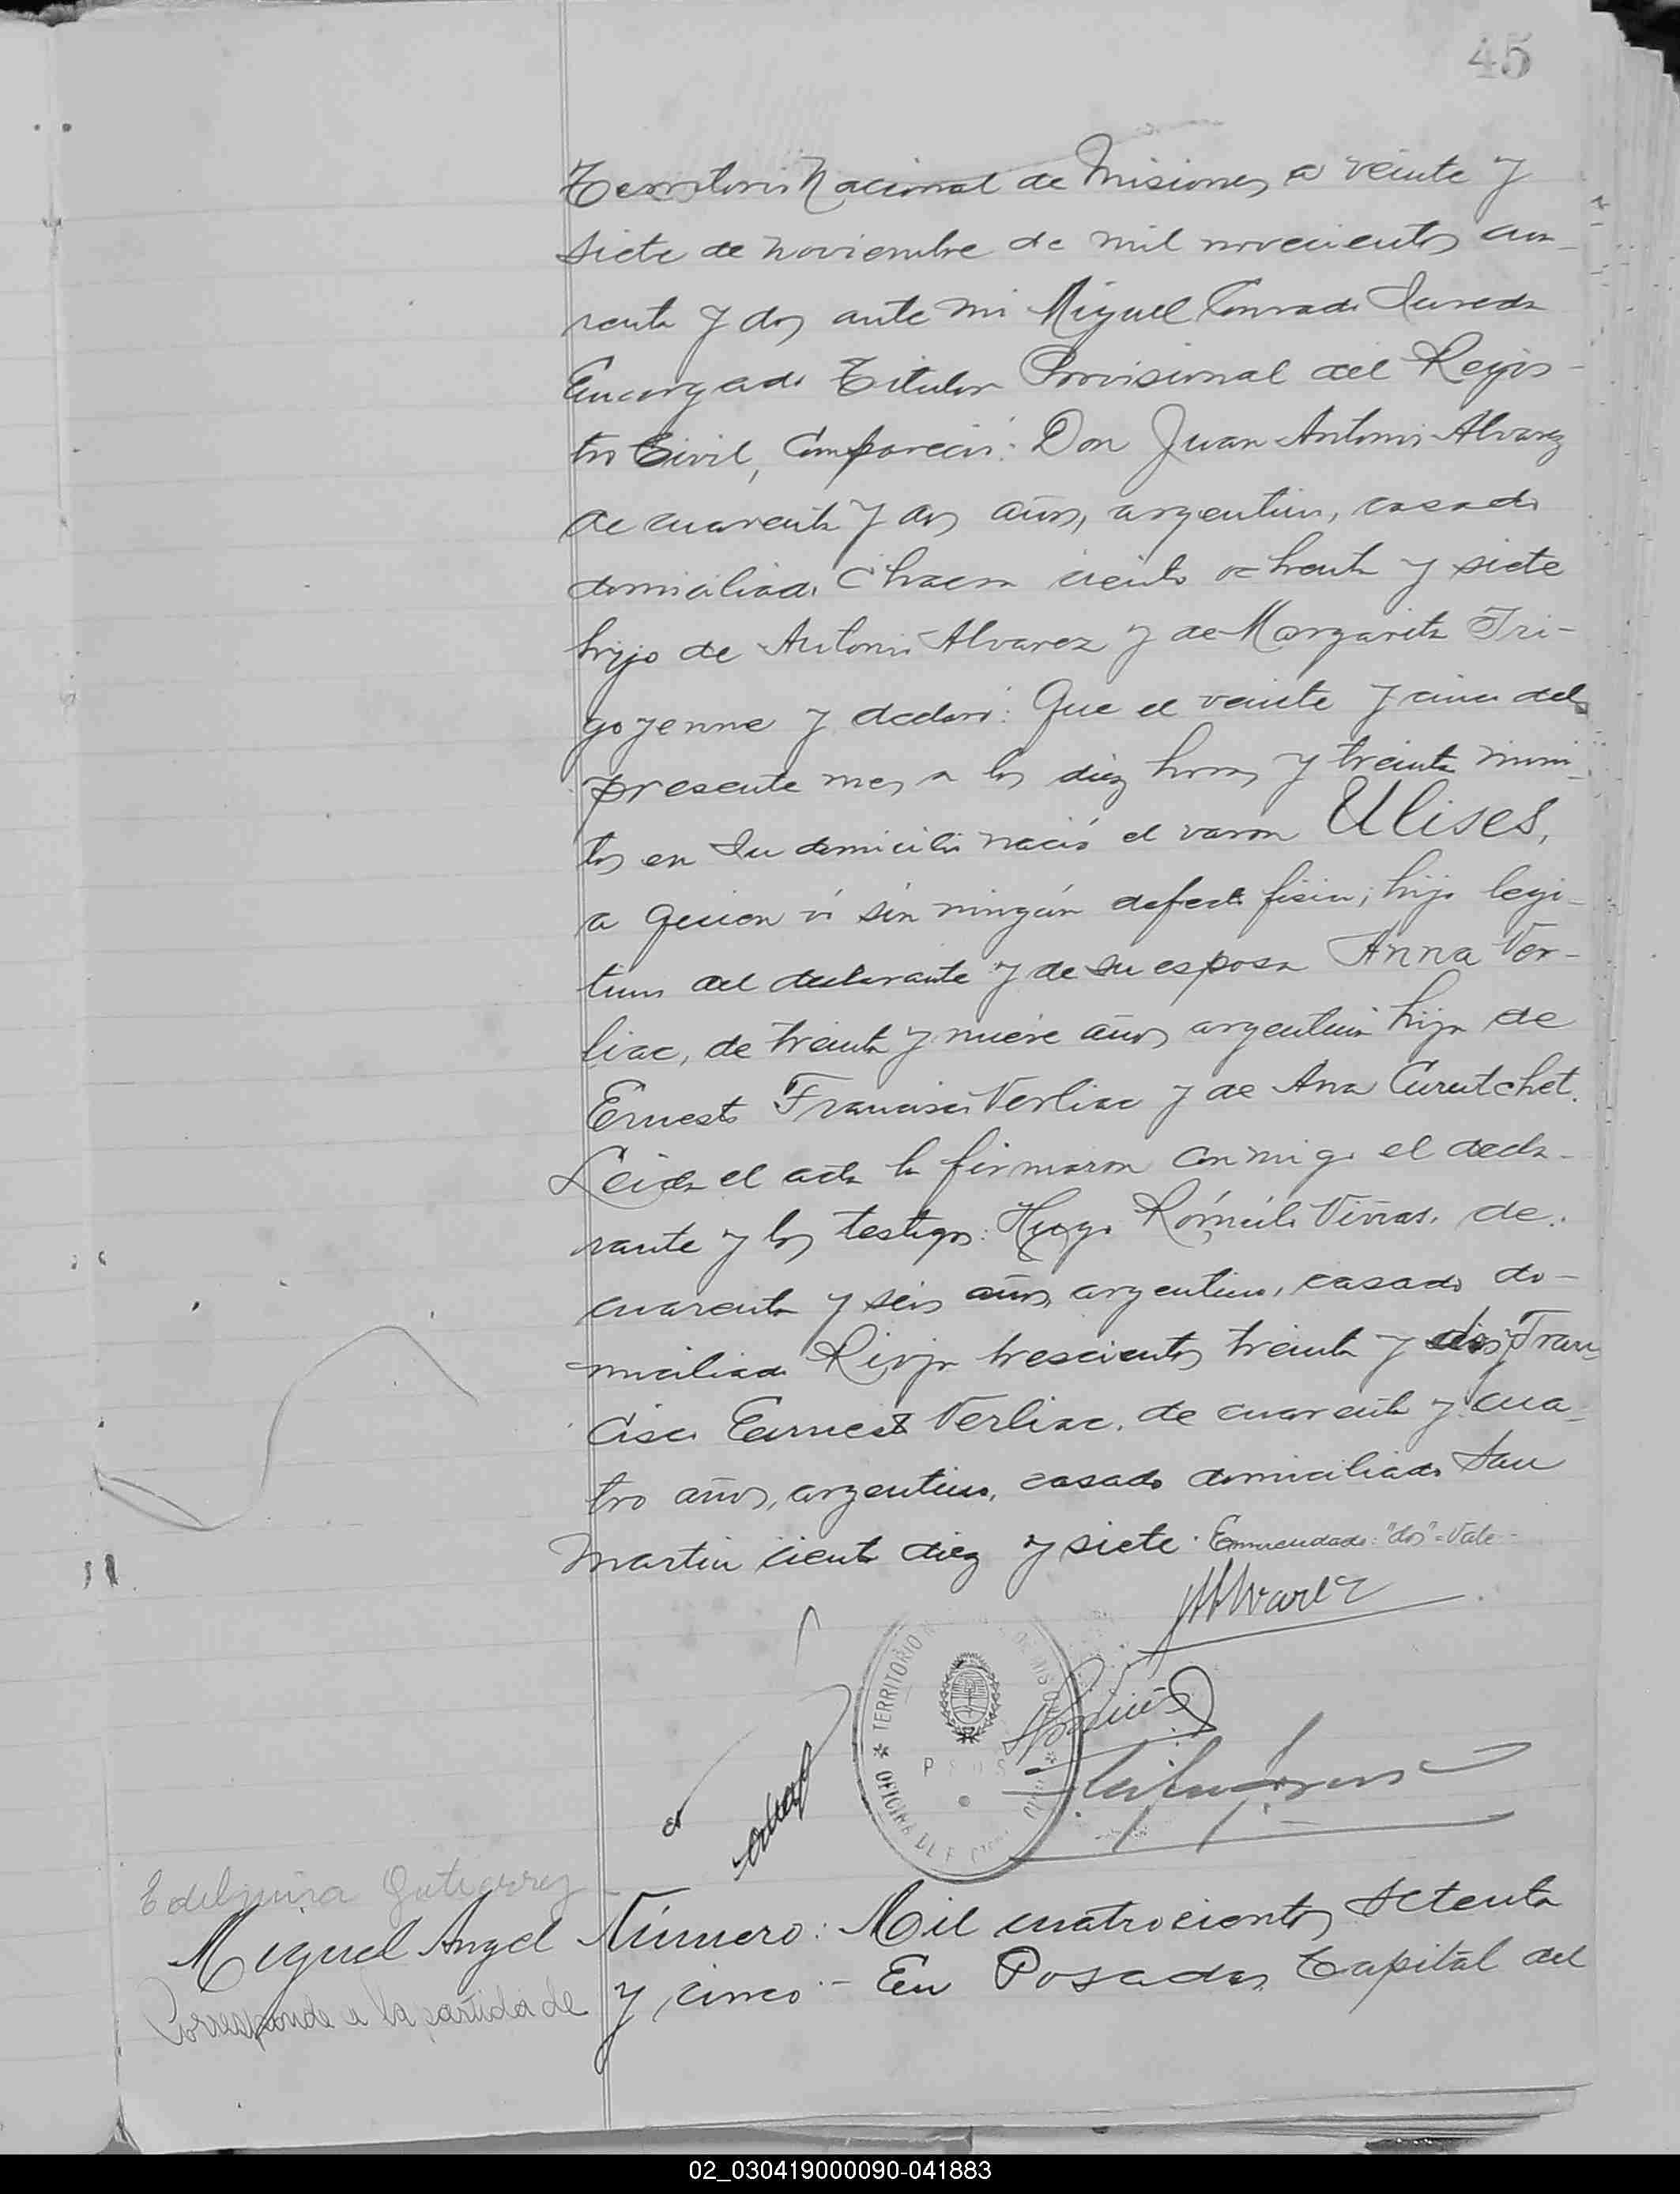 45
Territorio Nacional de Misiones, a veinte y
siete de noviembre de mil novecientos cua-
renta y dos ante mi Miguel Conrado
Encargado Titular Provisional del Regis-
tro Civil, Compareció: Don Juan Antonio Alvarez
de cuarenta y dos años, argentino, casado
domiciliado Chacra ciento ochenta y siete
hijo de Antonio Alvarez y de Margarita Iri-
goyenne y declaró: Que el veinte y cinco del
presente mes a las diez horas y treinta minu-
tos en su domicilio nació el varon Ulises,
a quien ví sin ningún defecto fisico; hijo legi-
timo del declarante y de su esposa Anna Ver-
liac, de treinta y nueve años argentina hija de
Ernesto Francisco Verliac y de Ana Curutchet.
Leida el acta la firmaron conmigo el decla-
rante y los testigos: Hugo Rómulo de
cuarenta y seis años, argentino, casado do-
miciliado Rioja trescientos treinta y dos y Fran-
cisco Ernesto Verliac, de cuarenta y cua-
tro años, argentino, casado domiciliado San
Martin ciento diez y siete. Enmendado: "dos" = Vale =
JAAlvarez
TERRITORIO DE MISIONES
OFICINA DEL
Edelmira Gutierrez
Miguel Angel
Corresponde a la partida de
Número: Mil cuatrocientos setenta
y cinco - En Posadas, Capital del
02_030419000090-041883